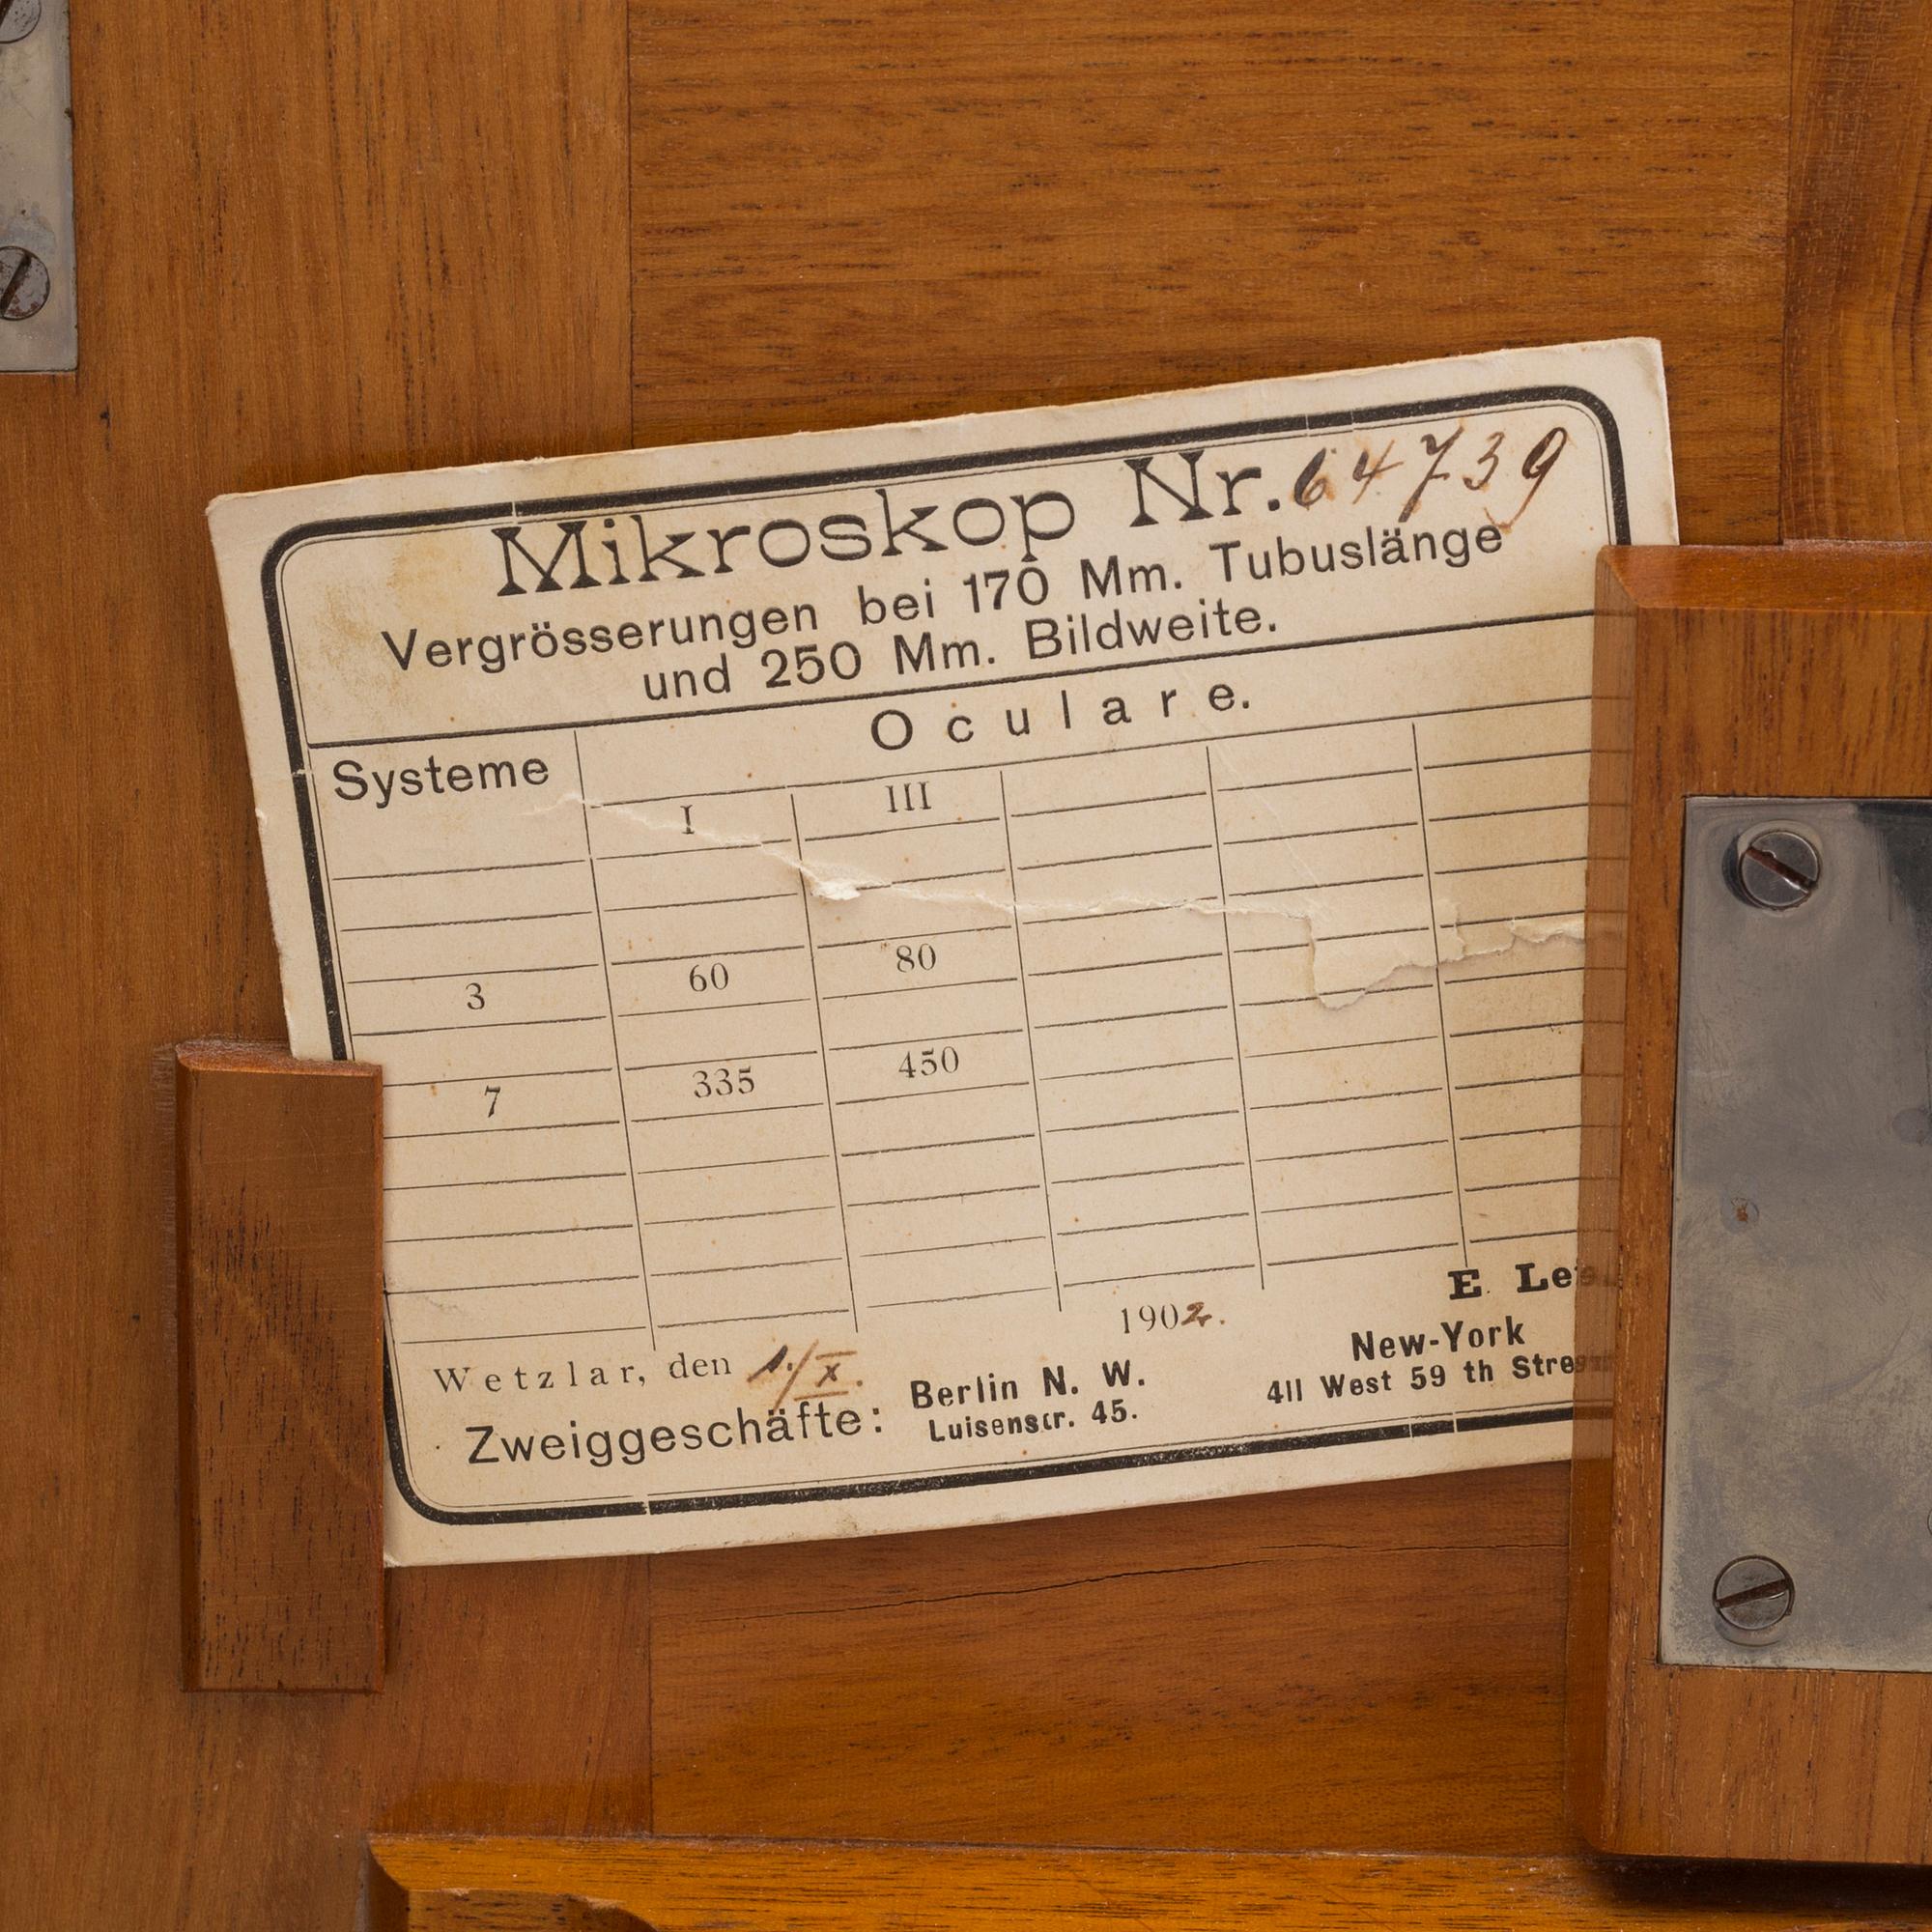 Mikroskop Nr. 64739
Vergrösserungen bei 170 Mm. Tubuslänge
und 250 Mm. Bildweite.
Systeme
Oculare.
I III
3 60 80
7 335 450
Wetzlar, den 1./X. 1902.
E.
Zweiggeschäfte:
Berlin N. W.
Luisenstr. 45.
New-York
411 West 59 th